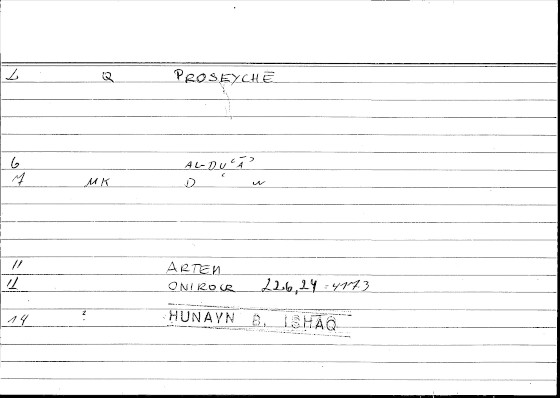 1 Q PROSEYCHE
6 AL-DUʿĀʾ
7 MK D ʿ W
11 ARTEM
12 ONIROCR 226,24 = 4173
14 : HUNAYN B. ISHĀQ